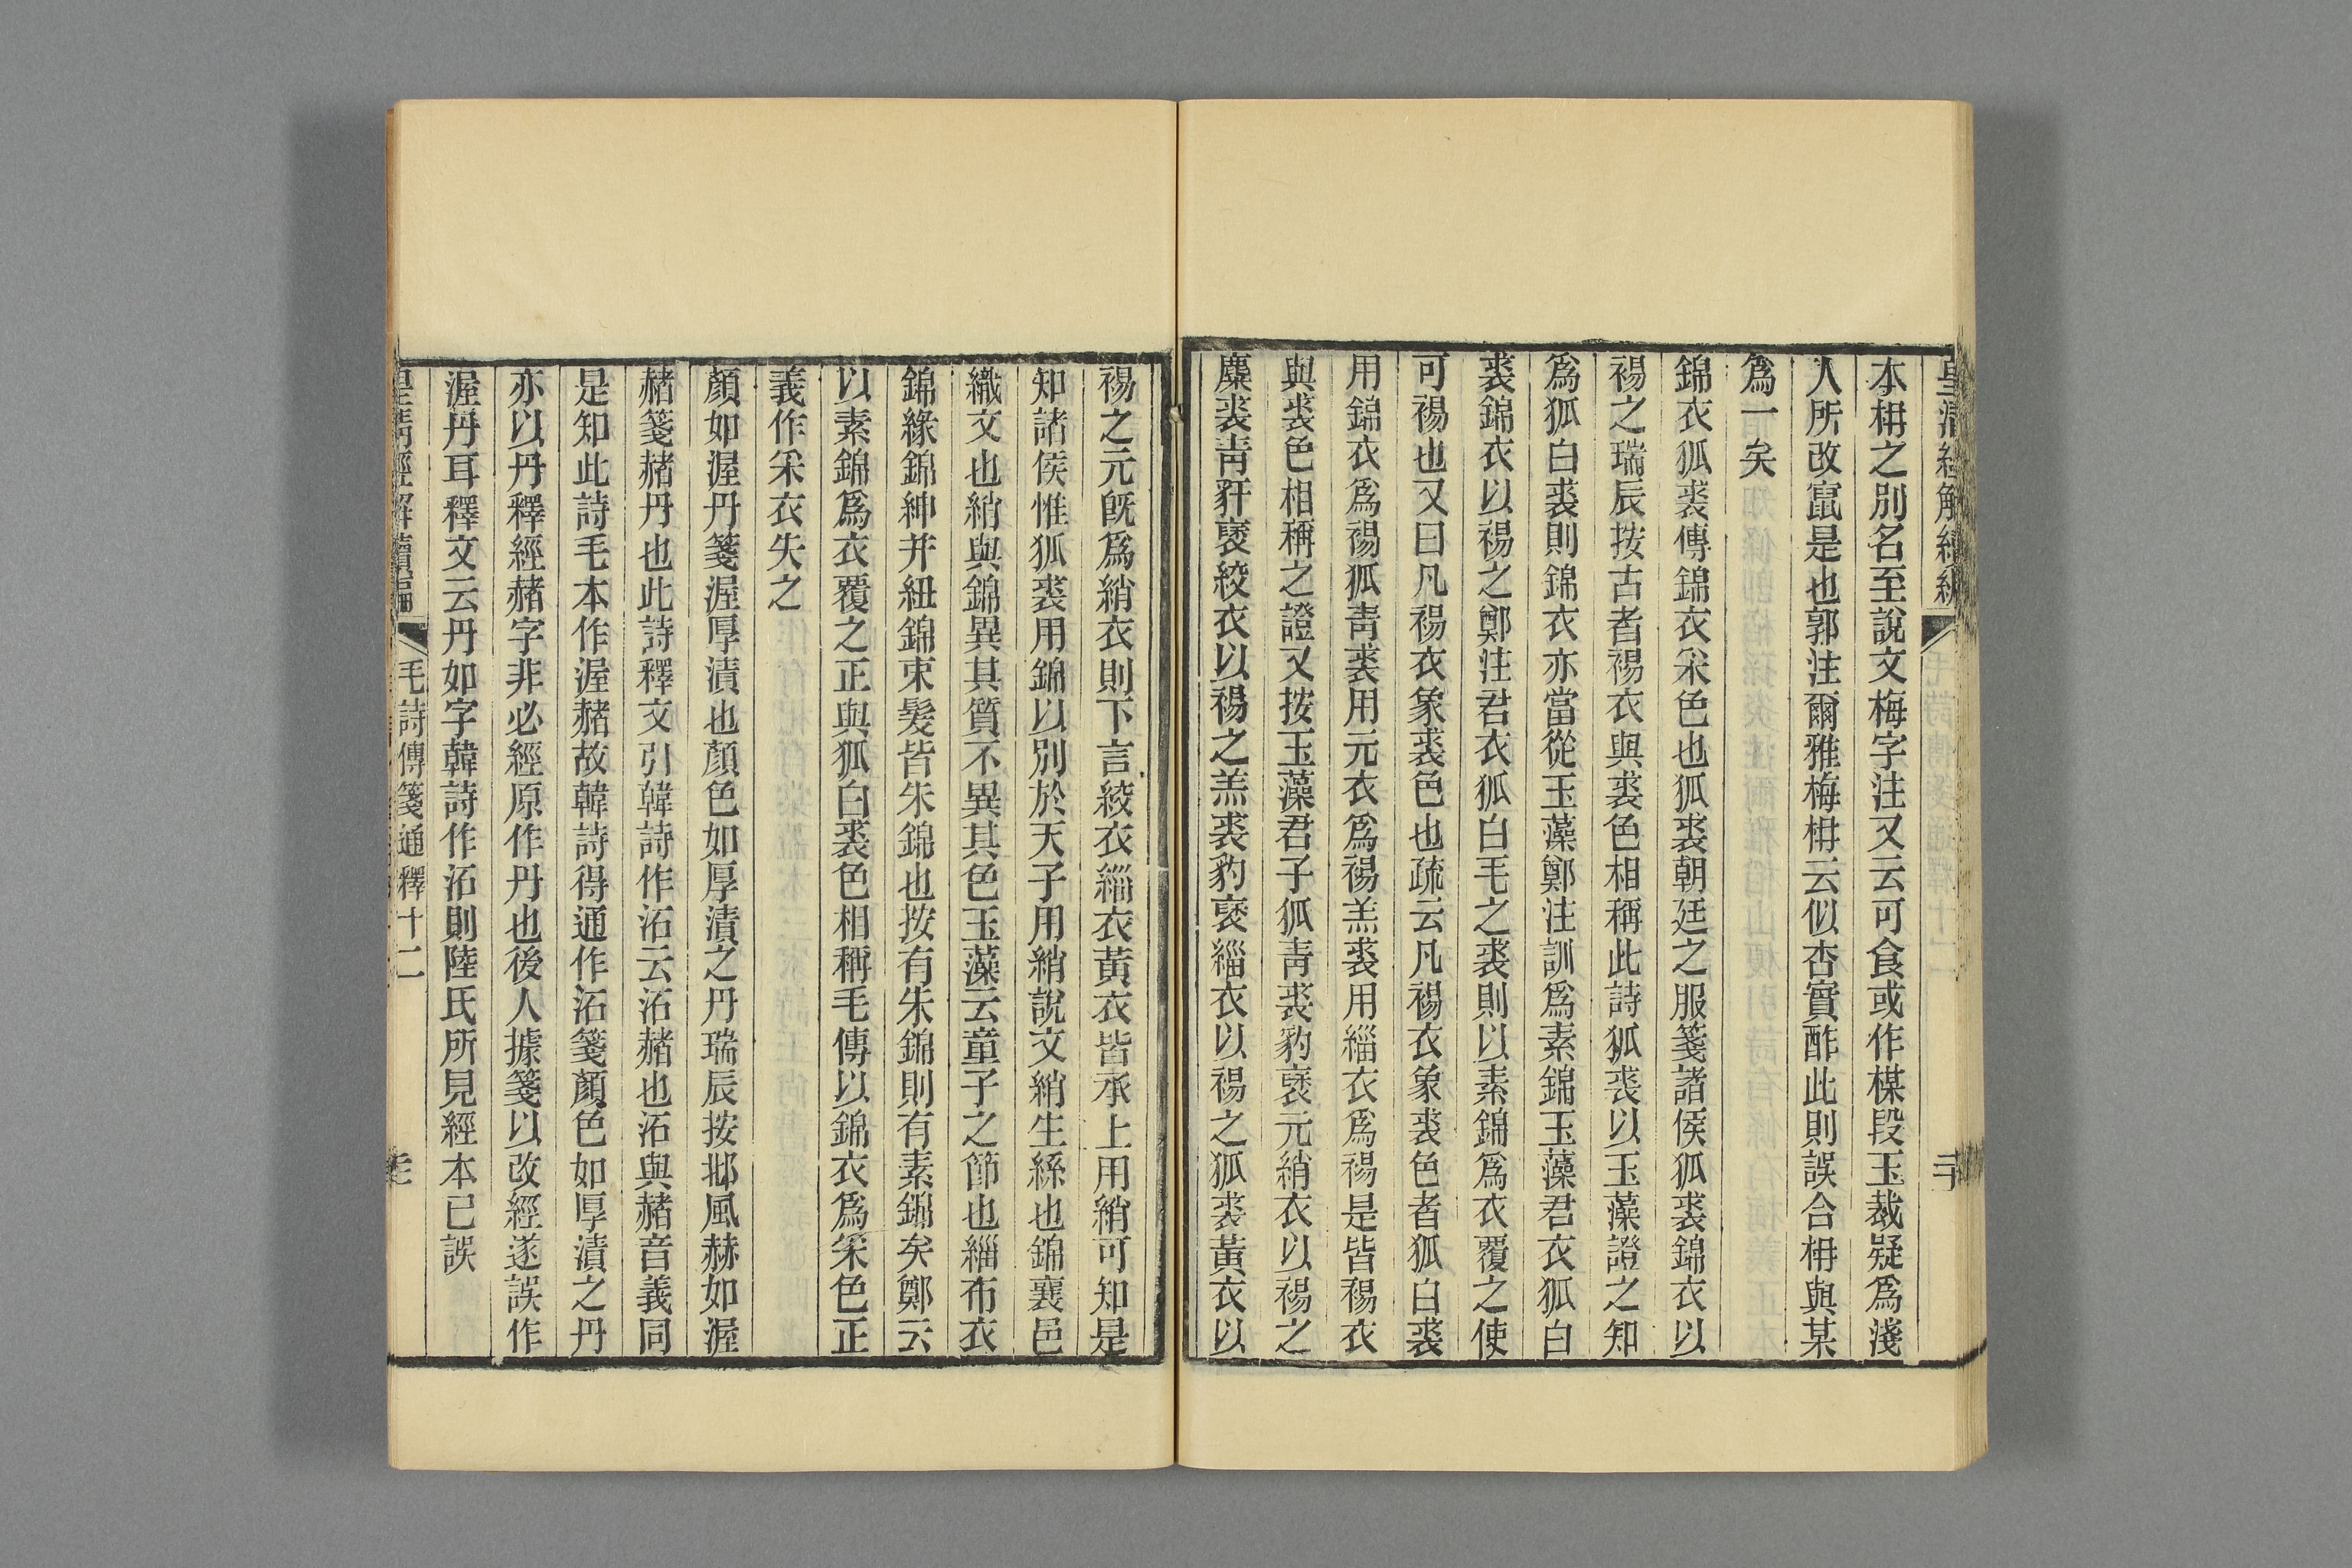 皇清經解續編
二十
本枏之別名至說文梅字注又云可食或作楳段玉裁疑爲淺
人所改竄是也郭注爾雅梅枏云似杏實酢此則誤合枏與某
爲一矣
錦衣狐裘傳錦衣采色也狐裘朝廷之服箋諸侯狐裘錦衣以
裼之瑞辰按古者裼衣與裘色相稱此詩狐裘以玉藻證之知
爲狐白裘則錦衣亦當從玉藻鄭注訓爲素錦玉藻君衣狐白
裘錦衣以裼之鄭注君衣狐白毛之裘則以素錦爲衣覆之使
可裼也又曰凡裼衣象裘色也疏云凡裼衣象裘色者狐白裘
用錦衣爲裼狐靑裘用元衣爲裼羔裘用緇衣爲裼是皆裼衣
與裘色相稱之證又按玉藻君子狐靑裘豹褎元綃衣以裼之
麛裘靑豻褎絞衣以裼之羔裘豹褎緇衣以裼之狐裘黃衣以
裼之元旣爲綃衣則下言絞衣緇衣黃衣皆承上用綃可知是
知諸侯惟狐裘用錦以別於天子用綃說文綃生絲也錦襄邑
織文也綃與錦異其質不異其色玉藻云童子之節也緇布衣
錦緣錦紳幷紐錦束髮皆朱錦也按有朱錦則有素錦矣鄭云
以素錦爲衣覆之正與狐白裘色相稱毛傳以錦衣爲采色正
義作采衣失之
顏如渥丹箋渥厚漬也顏色如厚漬之丹瑞辰按邶風赫如渥
赭箋赭丹也此詩釋文引韓詩作沰云沰赭也沰與赭音義同
是知此詩毛本作渥赭故韓詩得通作沰箋顏色如厚漬之丹
亦以丹釋經赭字非必經原作丹也後人據箋以改經遂誤作
渥丹耳釋文云丹如字韓詩作沰則陸氏所見經本已誤
皇淸經解續編
毛詩傳箋通釋十二